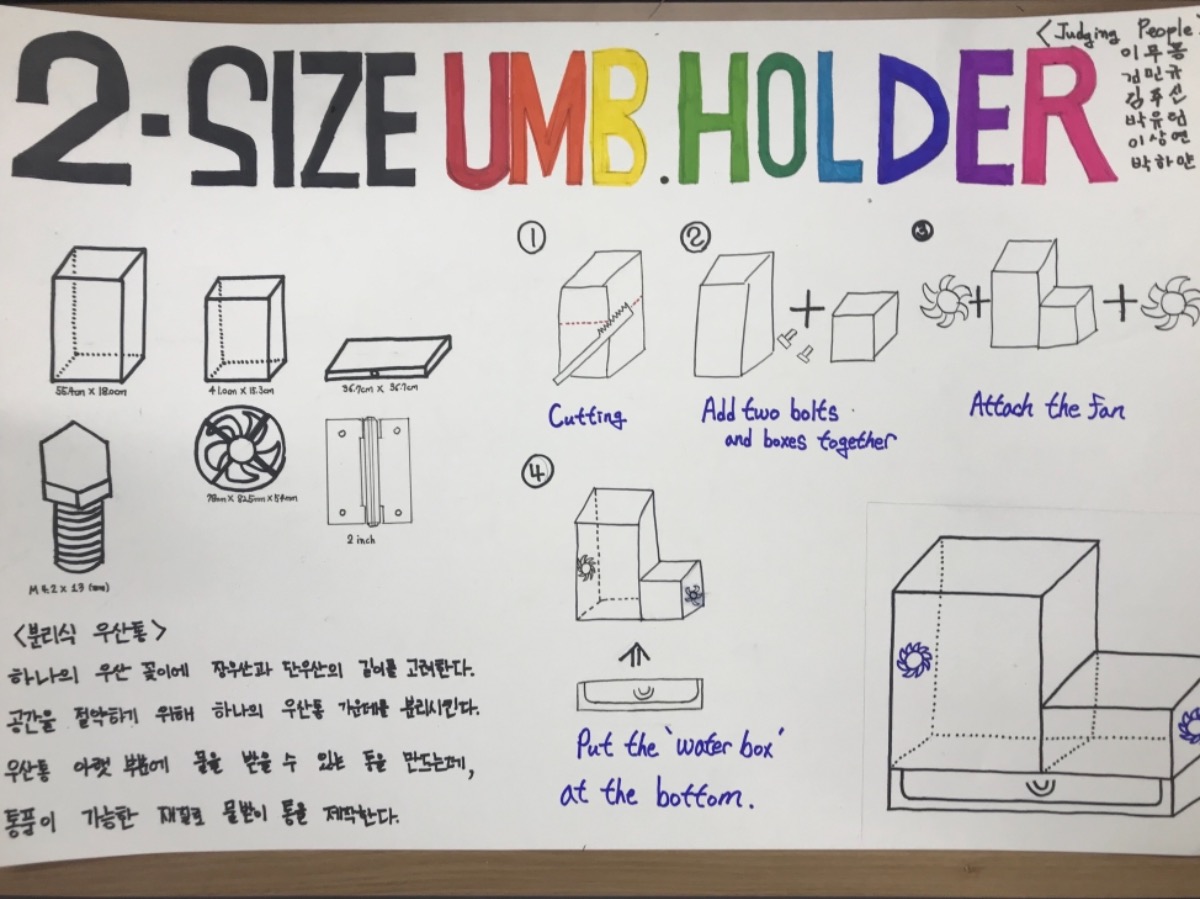 2-SIZE UMB.HOLDER
<Judging People>
이무몽
김민규
김주신
박유업
이상연
박하만
55.4cm X 18.0cm
41.0cm X 15.3cm
36.7cm X 36.7cm
M 4.2 x 13 (mm)
78mm X 82.5mm X 54mm
2 inch
<분리식 우산통>
하나의 우산 꽂이에 장우산과 단우산의 길이를 고려한다.
공간을 절약하기 위해 하나의 우산통 가운데를 분리시킨다.
우산통 아랫 부분에 물을 받을 수 있는 통을 만드는데,
통풍이 가능한 재질로 물받이 통을 제작한다.
①
Cutting
②
+
Add two bolts
and boxes together
③
+ +
Attach the fan
④
Put the 'water box'
at the bottom.